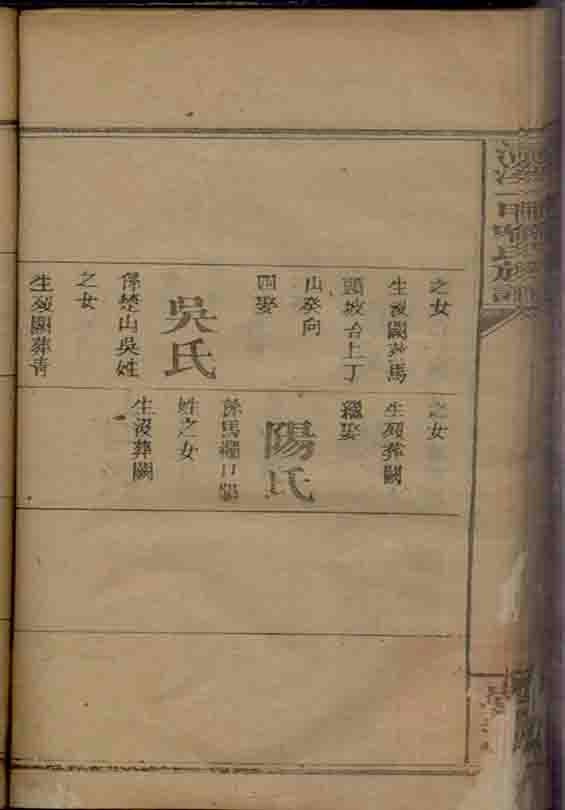 之女
生沒闕葬馬
頭坡台上丁
山癸向
四娶
吳氏
係楚山吳姓
之女
生歿闕葬青
之女
生歿葬闕
繼娶
陽氏
係馬欄口陽
姓之女
生沒葬闕
氏族譜